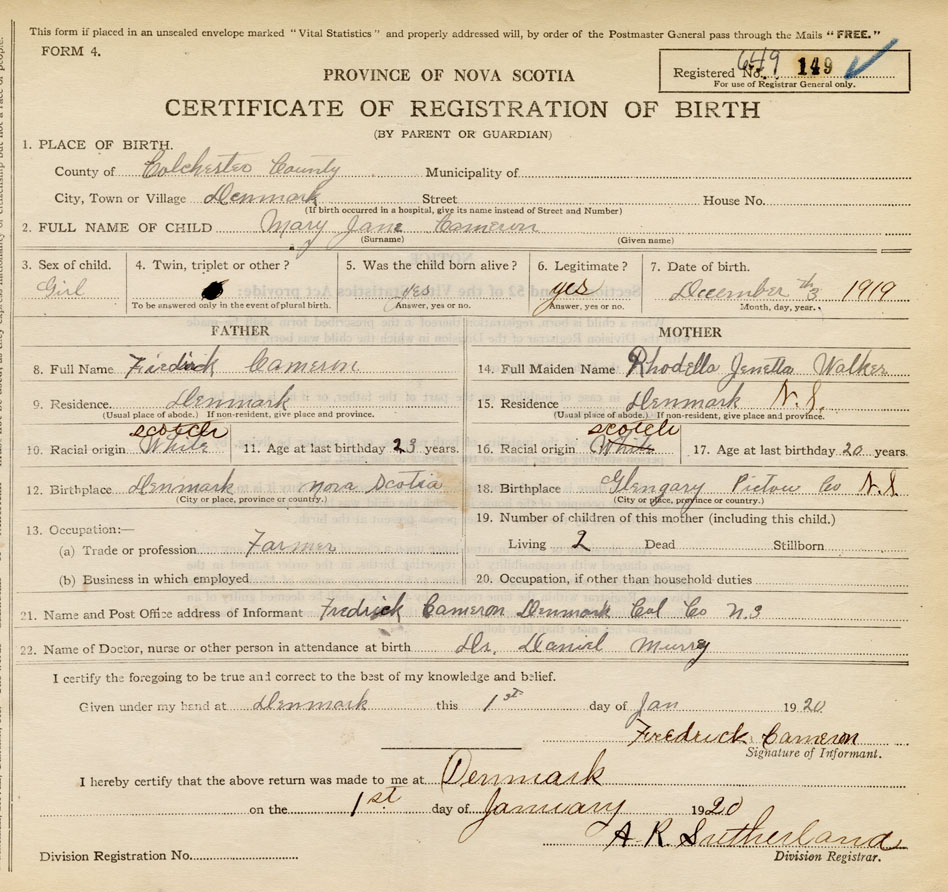 This form if placed in an unsealed envelope marked "Vital Statistics" and properly addressed will, by order of the Postmaster General pass through the Mails "FREE."
FORM 4.
Registered No. 649 149
For use of Registrar General only.
PROVINCE OF NOVA SCOTIA
CERTIFICATE OF REGISTRATION OF BIRTH
(BY PARENT OR GUARDIAN)
1. PLACE OF BIRTH.
County of Colchester County Municipality of
City, Town or Village Denmark Street House No.
(If birth occurred in a hospital, give its name instead of Street and Number)
2. FULL NAME OF CHILD Mary Jane Cameron
(Surname) (Given name)
3. Sex of child. 4. Twin, triplet or other? 5. Was the child born alive? 6. Legitimate? 7. Date of birth.
Girl yes yes December 3th 1919
To be answered only in the event of plural birth. Answer, yes or no. Answer, yes or no. Month, day, year.
FATHER MOTHER
8. Full Name Fredrick Cameron 14. Full Maiden Name Rhodella Jenetta Walker
9. Residence. Denmark 15. Residence Denmark N.S.
(Usual place of abode.) If non-resident, give place and province. (Usual place of abode.) If non-resident, give place and province.
scotch scotch
10. Racial origin White 11. Age at last birthday 23 years. 16. Racial origin White 17. Age at last birthday 20 years.
12. Birthplace Denmark Nova Scotia 18. Birthplace Glengary Pictou Co N.S
(City or place, province or country.) (City or place, province or country.)
13. Occupation:— 19. Number of children of this mother (including this child.)
(a) Trade or profession Farmer Living 2 Dead Stillborn
(b) Business in which employed 20. Occupation, if other than household duties
21. Name and Post Office address of Informant Fredrick Cameron Denmark Col Co N.S
22. Name of Doctor, nurse or other person in attendance at birth Dr. Daniel Murry
I certify the foregoing to be true and correct to the best of my knowledge and belief.
Given under my hand at Denmark this 1st day of Jan 1920
Fredrick Cameron
Signature of Informant.
I hereby certify that the above return was made to me at Denmark
on the 1st day of January 1920
A. R. Sutherland
Division Registration No. Division Registrar.